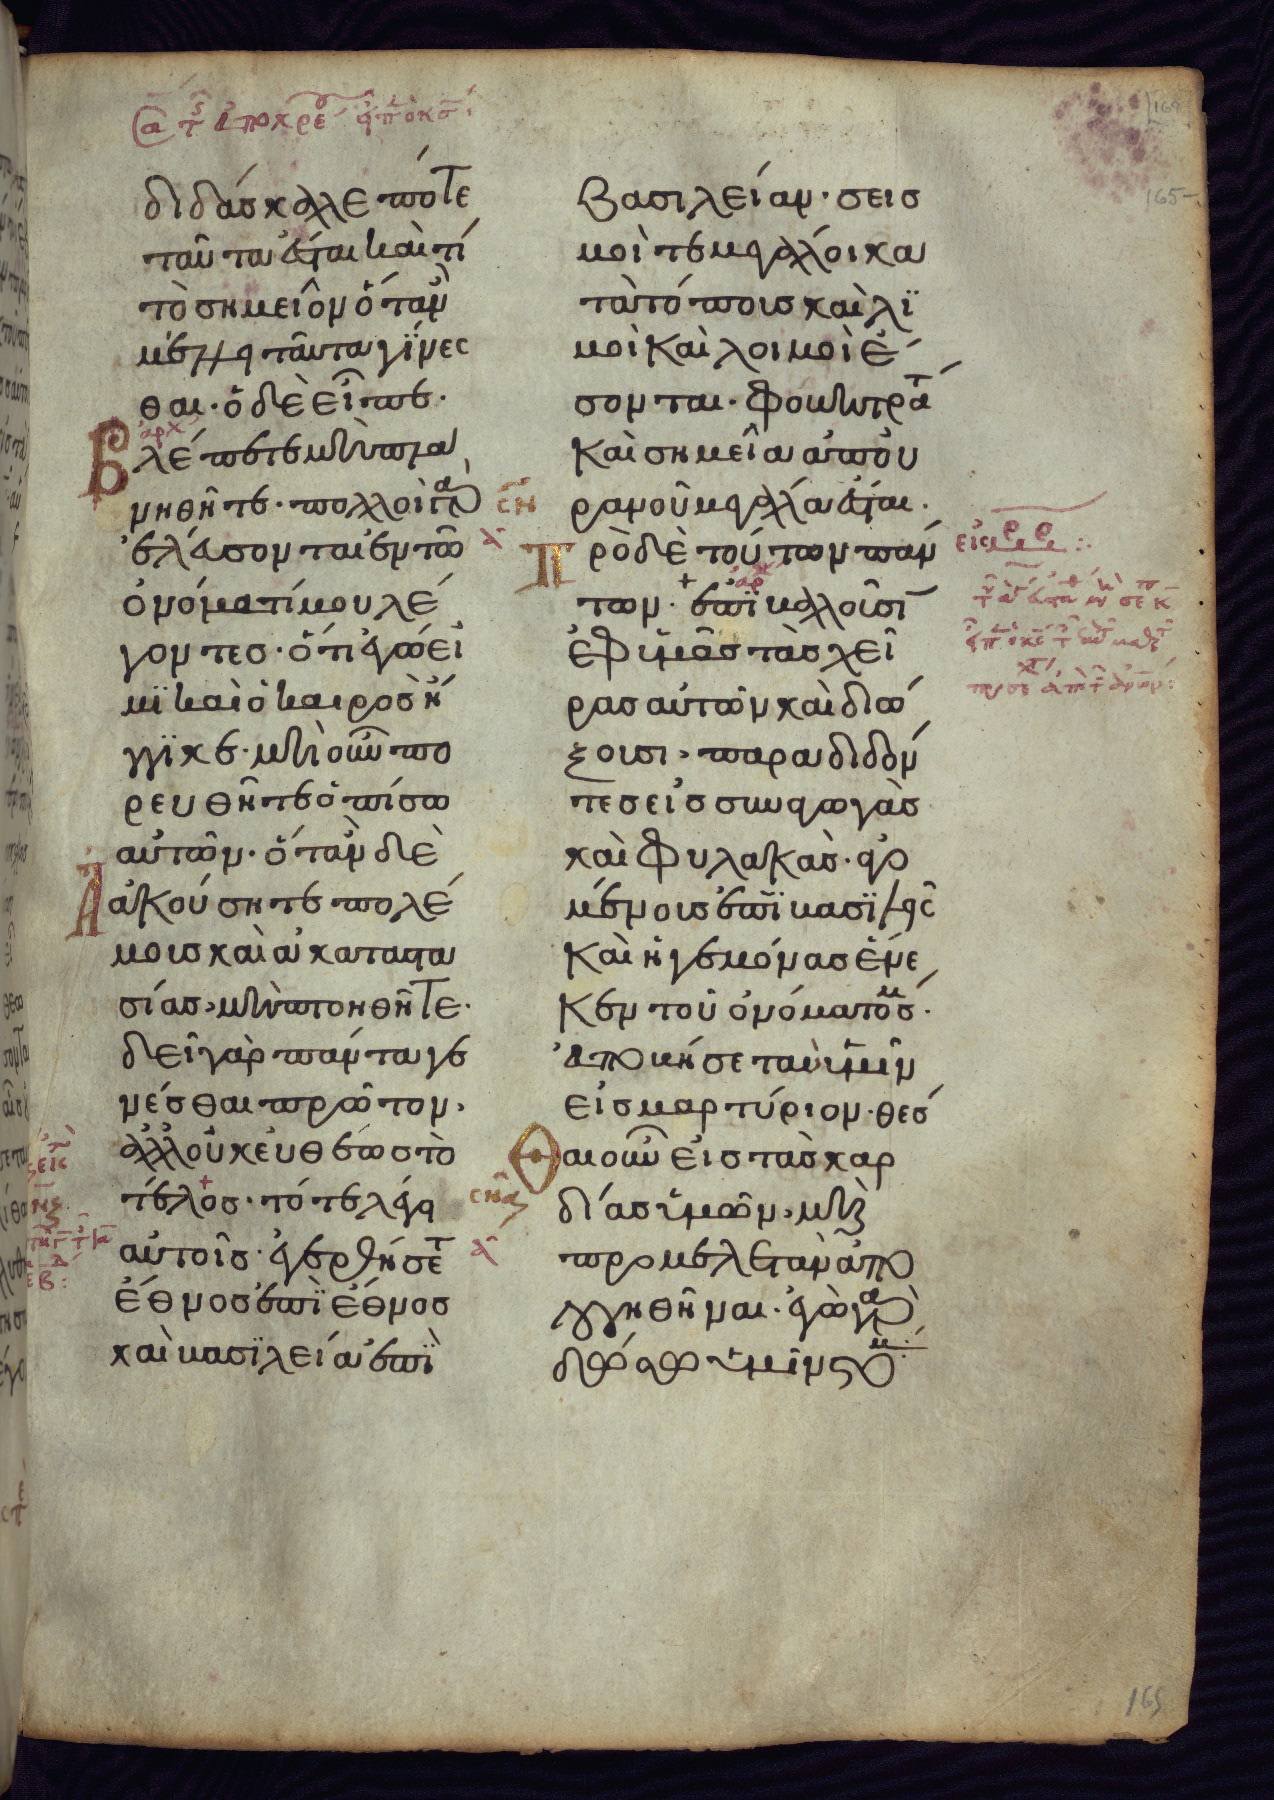 διδάσκαλε πότε
ταῦτα ἔσται καὶ τί
τὸ σημεῖον ὅταν
μέλλη ταῦτα γίνεσ
θαι· ὁ δὲ εἶπεν·
Βλέπετε μὴ πλα
νηθῆτε· πολλοὶ γὰρ
ἐλεύσονται ἐν τῶ
ὀνόματί μου λέ
γοντες· ὅτι ἐγώ εἰ
μϊ καὶ ὁ καιρὸς ἤ
γγϊκε· μὴ οὖν πο
ρευθῆτε ὀπίσω
αὐτῶν· ὅταν δὲ
Ἀκούσητε πολέ
μους καὶ ἀκαταστα
σίας, μὴ πτοηθῆτε·
δεῖ γὰρ πάντα γε
νέσθαι πρῶτον,
ἀλλ οὐκ εὐθέως τὸ
τέλος· τότε ἔλεγεν
αὐτοῖς· ἐγερθήσετ
ἔθνος ἐπῒ ἔθνος
καὶ βασϊλεία ἐπῒ
βασιλείαν· σεισ
μοί τε μεγάλοι κα
τὰ τόπους καὶ λϊ
μοὶ καὶ λοιμοὶ ἔ
σονται· φόβητρά τ
καὶ σημεῖα ἀπ οὐ
ρανοῦ μεγάλα ἔσται·
Πρὸ δὲ τούτων πάν
των· ἐπϊβαλοῦσϊ
ἐφ ὑμᾶς τὰς χεῖ
ρας αὐτῶν καὶ διώ
ξουσι, παραδιδόν
τες εἰς συναγωγὰς
καὶ φυλακάς· ἀγο
μένους ἐπῒ βασϊλεῖς
καὶ ἡγεμόνας ἕνε
κεν τοῦ ὀνόματός μ·
ἀποβήσεται ὑμῖν
εἰς μαρτύριον· θέσ
Θαι οὖν εἰς τὰς καρ
δίας ὑμῶν, μὴ
προμελετᾶν ἀπο
λογηθῆναι· ἐγὼ γὰρ
δώσω ὑμῖν στόμ
165
165